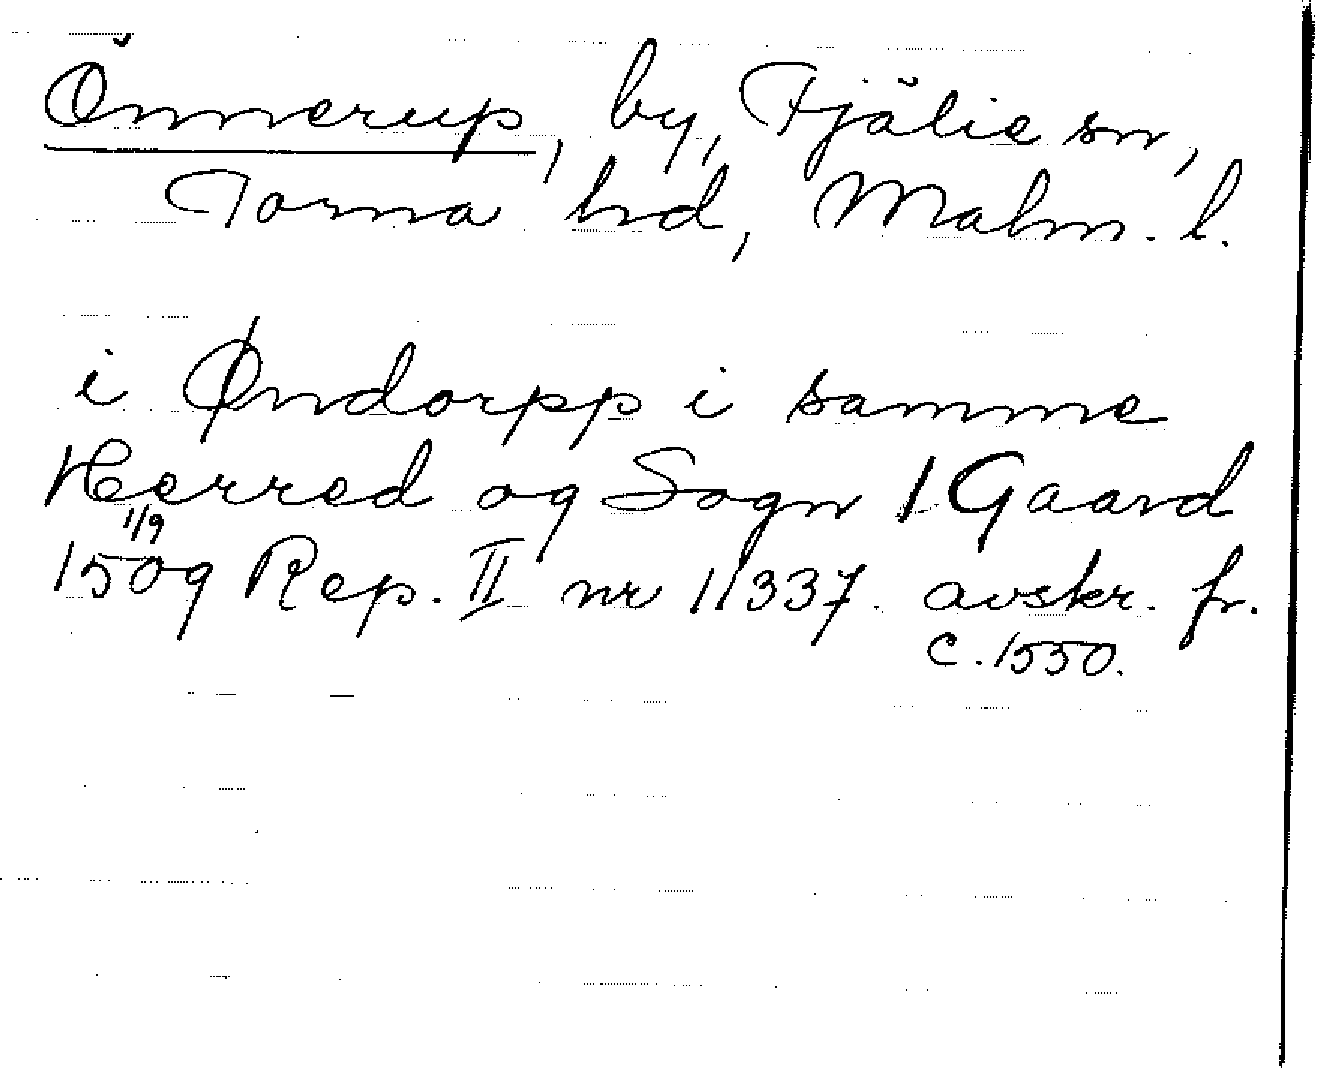 Önnerup, by, Fjälie sn,
Torna hd, Malm. l.
i Øndorpp i samme
Herred og Sogn 1 Gaard
1/9
1509 Rep. II nr 11337. avskr. fr.
c. 1550.